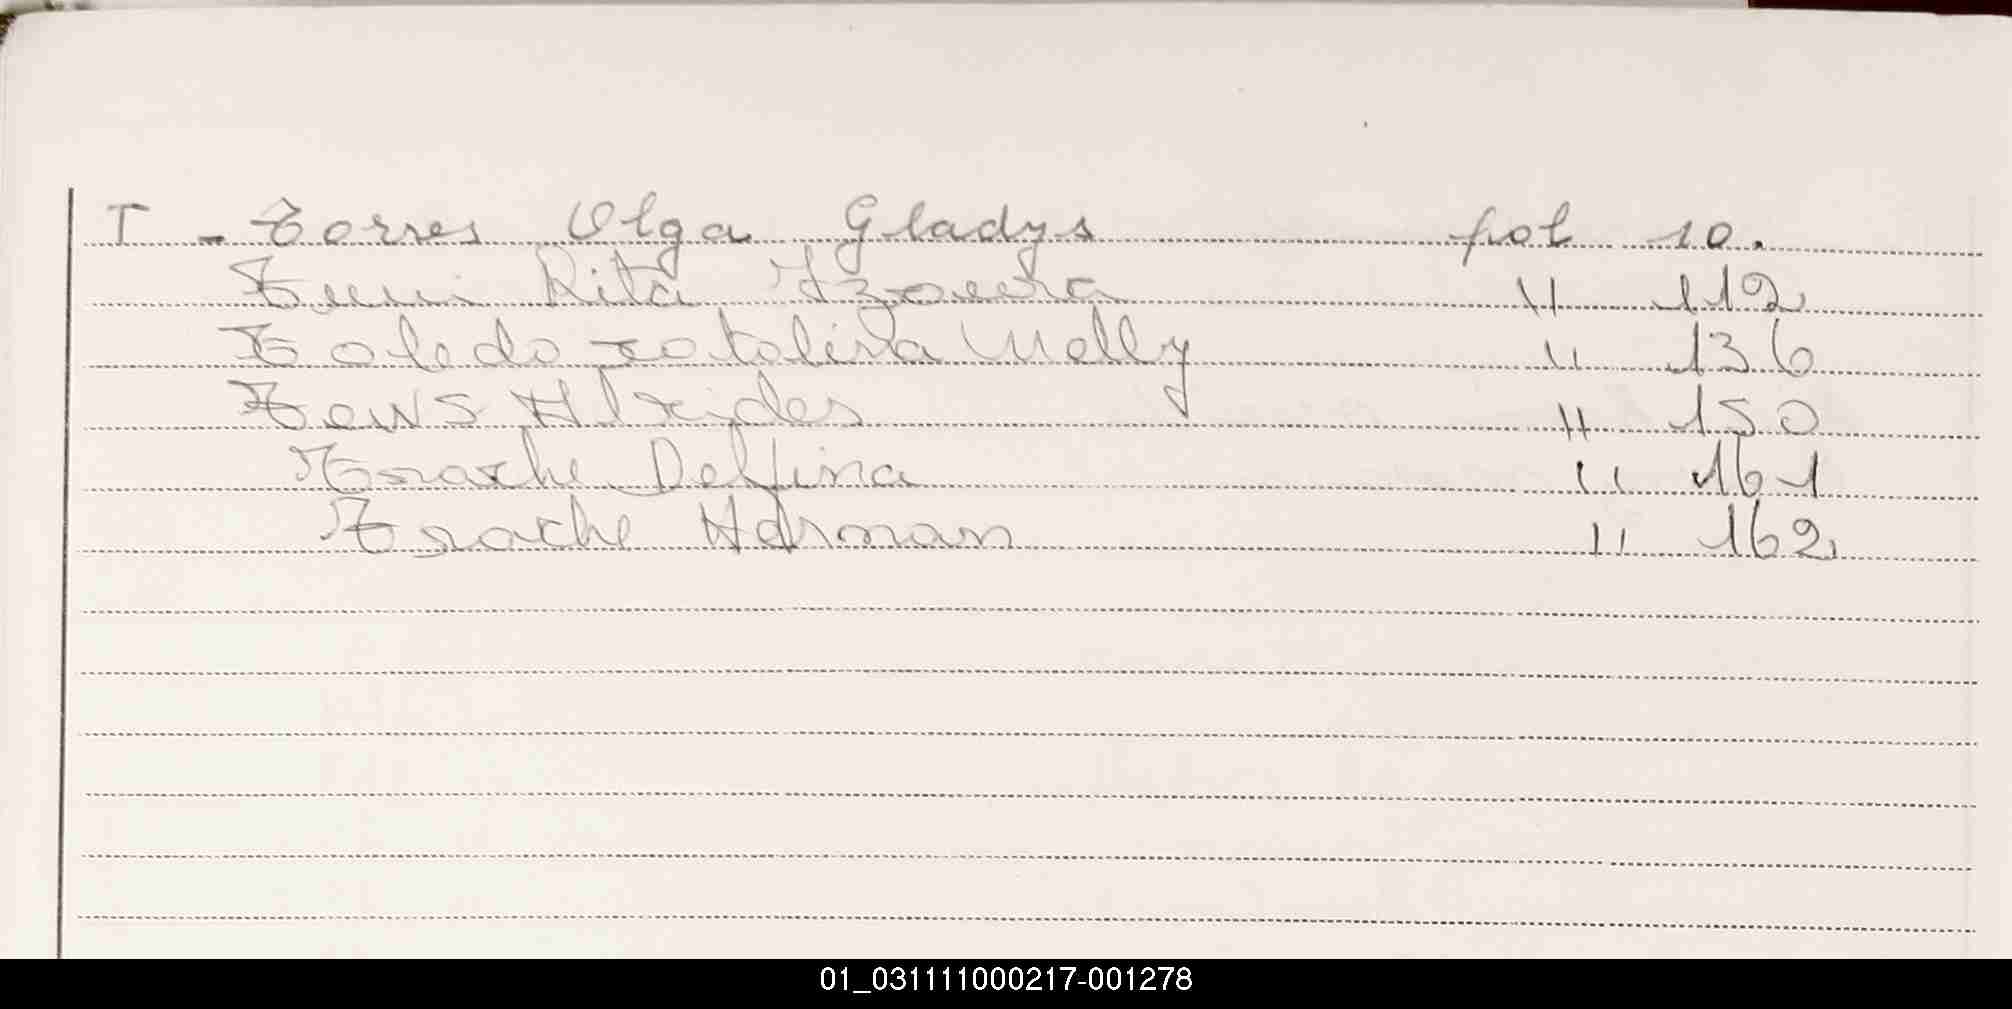 T - Torres Olga Gladys fol 10.
Rita " 112
Toledo Catalina Melly " 136
Tews Alcides " 150
Trache Delfina " 161
Trache Adrman " 162
01_031111000217-001278